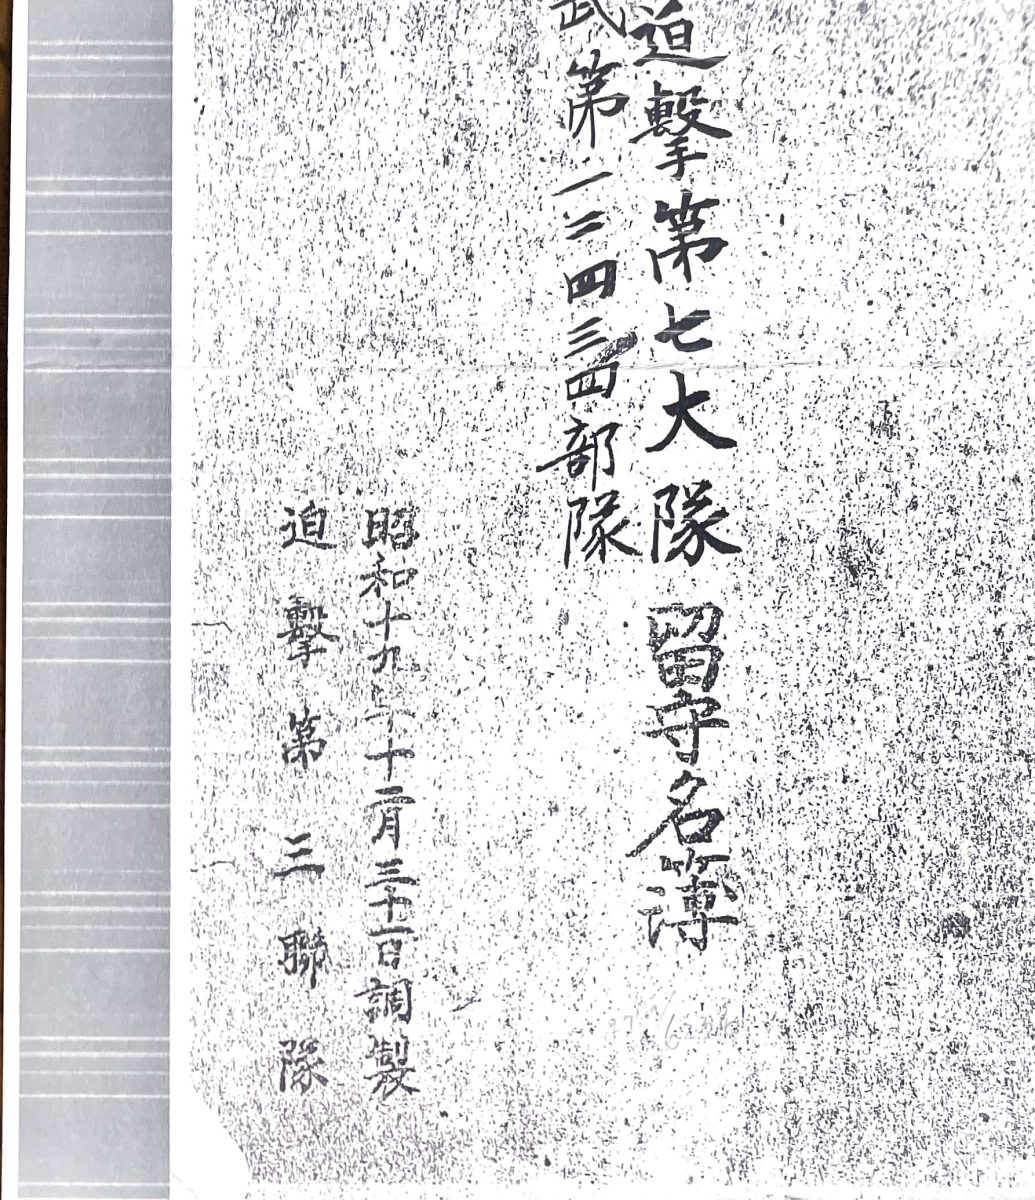 迫撃第七大隊留守名簿
武第一二四三四部隊
昭和十九年十二月三十一日調製
迫撃第三聯隊